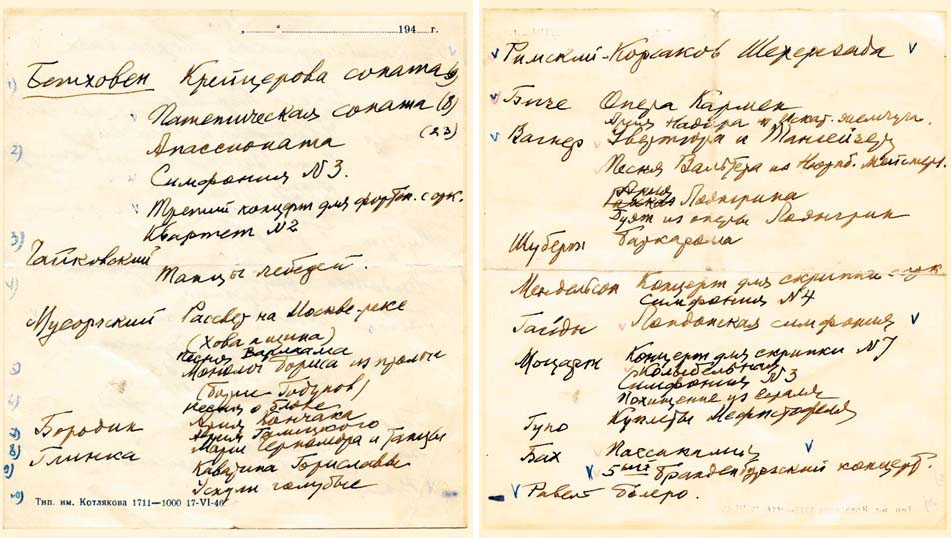 194 г.
1) Бетховен Крейцерова соната (9)
Патетическая соната (8)
2) Апассионата (23)
Симфония №3.
Третий концерт для фортп. с орк.
3) Квартет №2
Чайковский
4) Танцы лебедей.
Мусоргский Рассвет на Москве-реке
(Хованщина)
Песня Варлаама
Монолог Бориса из
(Борис Годунов)
6) Песня о блохе
Бородин Ария Кончака
Ария Галицкого
8) Глинка Марш Черномора и Танцы
9) Каватина Гориславы
Уснули голубые
Тип. им. Котлякова 1711—1000 17-VI-46
Римский-Корсаков Шехерезада
Бизе Опера Кармен
Ария Надира из Искат. жемчуга.
Вагнер Увертюра к Тангейзер
Песня Вальтера из Нюрнб. Мейстерз.
Ария Лоэнгрина
Дуэт из оперы Лоэнгрин
Шуберт Баркарола
Мендельсон Концерт для скрипки с орк
Симфония №4
Гайдн Лондонская симфония
Моцарт Концерт для скрипки №7
Колыбельная
Симфония №3
Похищение из сераля
Гуно Куплеты Мефистофеля
Бах Пассакалия
5ый Бранденбургский концерт.
Равель Болеро.